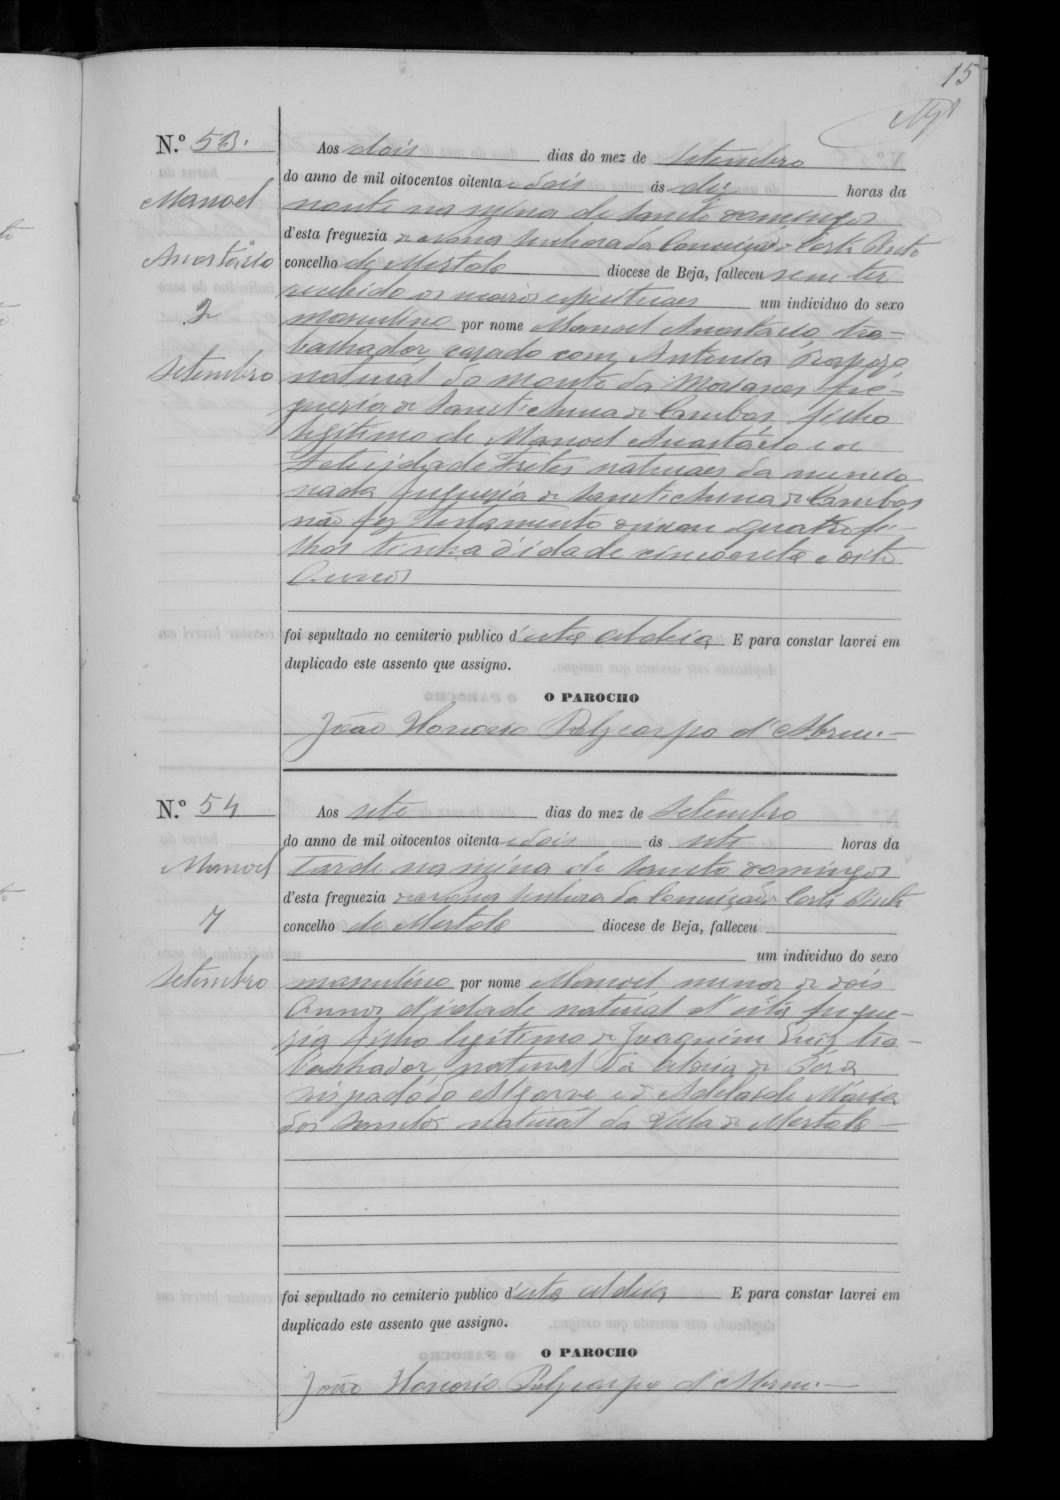 15
N.º 53.
Manoel
Anastácio
2
Setembro
Aos dois dias do mez de Setembro
do anno de mil oitocentos oitenta e dois ás dez horas da
noute na mina de Sancto Domingos
d'esta freguezia de Nossa Senhora da Conceição de Corte Pinto
concelho de Mertola diocese de Beja, falleceu sem ter
recebido os socorros espirituaes um individuo do sexo
masculino por nome Manoel Anastacio, tra-
balhador, casado com Antonia
natural do monte da fre-
guezia de Sanct'Anna de Cambas filho
legitimo de Manoel Anastácio e de
Felicidade naturaes da mencio
nada freguezia de Sanct'Anna de Cambas
não fez testamento deixou quatro fi-
lhos tinha d'idade cincoenta e oito
Annos
foi sepultado no cemiterio publico d'esta aldeia E para constar lavrei em
duplicado este assento que assigno.
O PAROCHO
João Honorio Polycarpo d'Abreu.
N.º 54
Manoel
7
Setembro
Aos sete dias do mez de Setembro
do anno de mil oitocentos oitenta e dois ás sete horas da
tarde na mina de Sancto Domingos
d'esta freguezia de Nossa Senhora da Conceição de Corte Pinto
concelho de Mertola diocese de Beja, falleceu
um individuo do sexo
masculino por nome Manoel menor de dois
Annos d'idade natural d'esta fregue-
zia filho legitimo de Joaquim Luiz tra-
balhador, natural da de
bispado do Algarve e de Adelaide Maria
dos Santos natural da Villa de Mertola
foi sepultado no cemiterio publico d'esta aldeia E para constar lavrei em
duplicado este assento que assigno.
O PAROCHO
João Honorio Polycarpo d'Abreu.